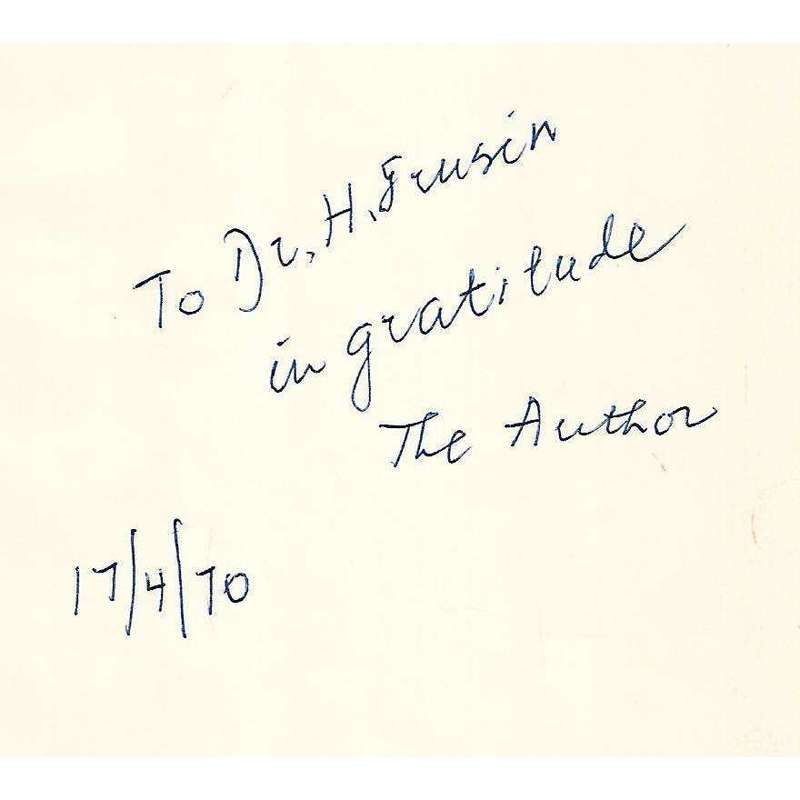 To Dr. H. Frusin
in gratitude
The Author
17/4/70